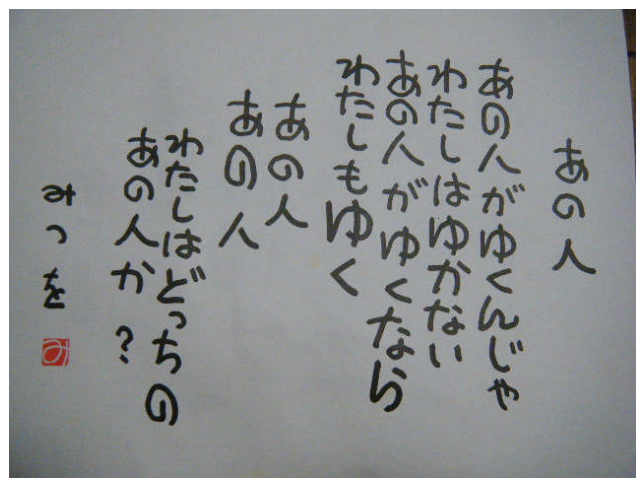 あの人
あの人がゆくんじゃ
わたしはゆかない
あの人がゆくなら
わたしもゆく
あの人
あの人
わたしはどっちの
あの人か？
みつを
み